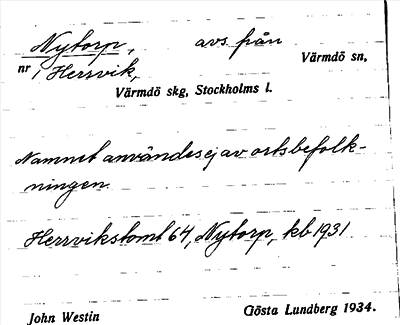 Nytorp, avs. från
nr 1 Herrvik, Värmdö sn,
Värmdö skg, Stockholms l.
Namnet användes ej av ortsbefolk-
ningen.
Herrvikstomt 64, Nytorp, kb 1931
John Westin Gösta Lundberg 1934.